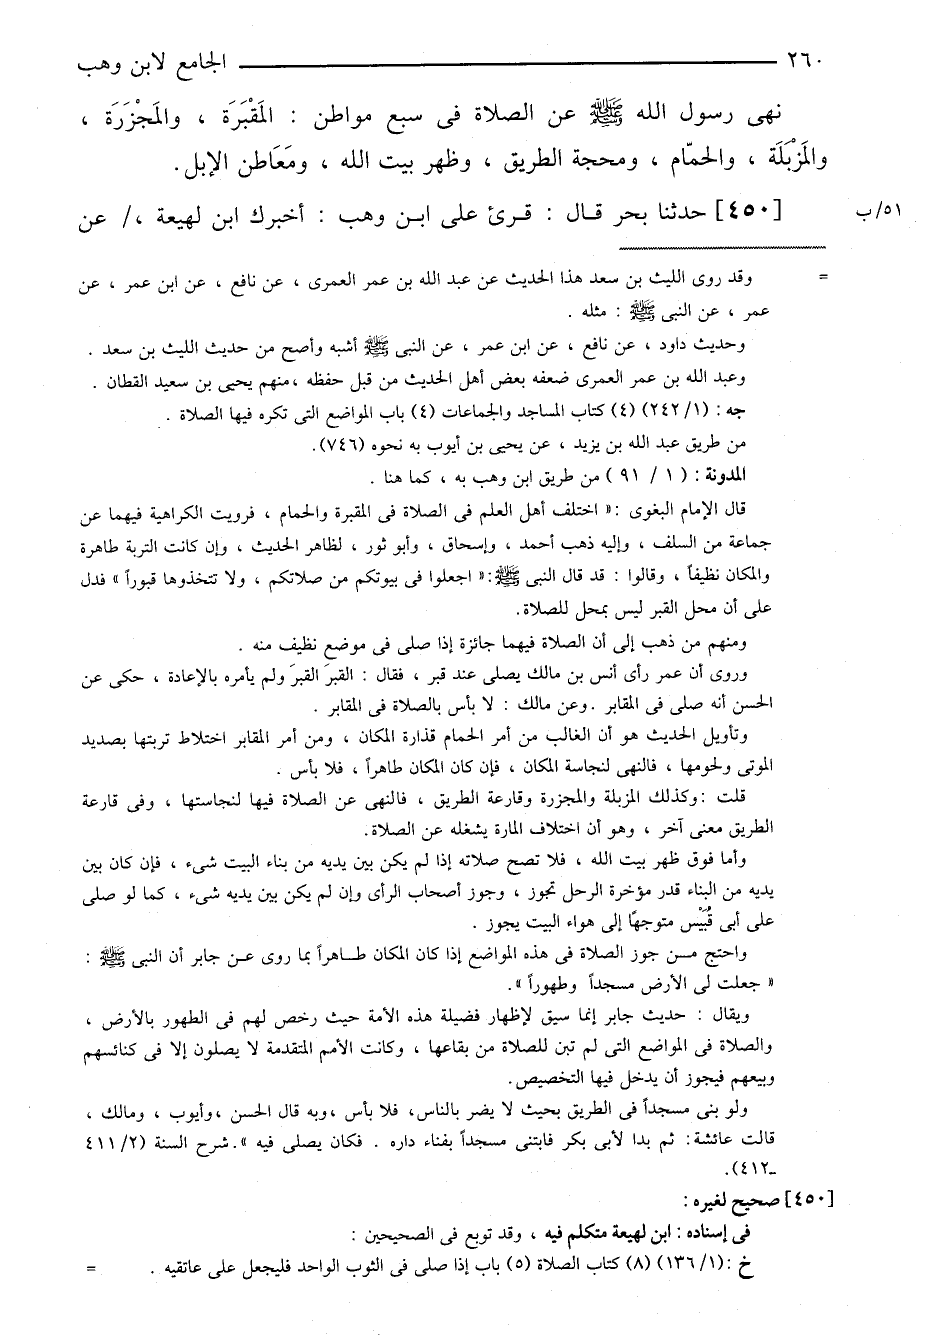 ٢٦٠ الجامع لابن وهب
نهى رسول الله ﷺ عن الصلاة فى سبع مواطن : المَقْبَرَة ، والمَجْزَرَة ،
والمَزْبَلَة ، والحمّام ، ومحجة الطريق ، وظهر بيت الله ، ومَعَاطن الإبل .
٥١/ب [٤٥٠] حدثنا بحر قال : قرئ على ابن وهب : أخبرك ابن لهيعة ،/ عن
= وقد روى الليث بن سعد هذا الحديث عن عبد الله بن عمر العمرى ، عن نافع ، عن ابن عمر ، عن
عمر ، عن النبى ﷺ : مثله .
وحديث داود ، عن نافع ، عن ابن عمر ، عن النبى ﷺ أشبه وأصح من حديث الليث بن سعد .
وعبد الله بن عمر العمرى ضعفه بعض أهل الحديث من قبل حفظه ،منهم يحيى بن سعيد القطان .
جه : (١/ ٢٤٢) (٤) كتاب المساجد والجماعات (٤) باب المواضع التى تكره فيها الصلاة .
من طريق عبد الله بن يزيد ، عن يحيى بن أيوب به نحوه (٧٤٦).
المدونة : ( ١ / ٩١ ) من طريق ابن وهب به ، كما هنا .
قال الإمام البغوى :« اختلف أهل العلم فى الصلاة فى المقبرة والحمام ، فرويت الكراهية فيهما عن
جماعة من السلف ، وإليه ذهب أحمد ، وإسحاق ، وأبو ثور ، لظاهر الحديث ، وإن كانت التربة طاهرة
والمكان نظيفاً ، وقالوا : قد قال النبى ﷺ:« اجعلوا فى بيوتكم من صلاتكم ، ولا تتخذوها قبوراً » فدل
على أن محل القبر ليس بمحل للصلاة.
ومنهم من ذهب إلى أن الصلاة فيهما جائزة إذا صلى فى موضع نظيف منه .
وروى أن عمر رأى أنس بن مالك يصلى عند قبر ، فقال : القبرَ القبرَ ولم يأمره بالإعادة ، حكى عن
الحسن أنه صلى فى المقابر .وعن مالك : لا بأس بالصلاة فى المقابر .
وتأويل الحديث هو أن الغالب من أمر الحمام قذارة المكان ، ومن أمر المقابر اختلاط تربتها بصديد
الموتى ولحومها ، فالنهى لنجاسة المكان ، فإن كان المكان طاهراً ، فلا بأس .
قلت :وكذلك المزبلة والمجزرة وقارعة الطريق ، فالنهى عن الصلاة فيها لنجاستها ، وفى قارعة
الطريق معنى آخر ، وهو أن اختلاف المارة يشغله عن الصلاة.
وأما فوق ظهر بيت الله ، فلا تصح صلاته إذا لم يكن بين يديه من بناء البيت شىء ، فإن كان بين
يديه من البناء قدر مؤخرة الرحل تجوز ، وجوز أصحاب الرأى وإن لم يكن بين يديه شىء ، كما لو صلى
على أبى قُبَيْس متوجهًا إلى هواء البيت يجوز .
واحتج من جوز الصلاة فى هذه المواضع إذا كان المكان طاهراً بما روى عن جابر أن النبى ﷺ :
« جعلت لى الأرض مسجداً وطهوراً ».
ويقال : حديث جابر إنما سيق لإظهار فضيلة هذه الأمة حيث رخص لهم فى الطهور بالأرض ،
والصلاة فى المواضع التى لم تبن للصلاة من بقاعها ، وكانت الأمم المتقدمة لا يصلون إلا فى كنائسهم
وبيعهم فيجوز أن يدخل فيها التخصيص.
ولو بنى مسجداً فى الطريق بحيث لا يضر بالناس، فلا بأس ،وبه قال الحسن ،وأيوب ، ومالك ،
قالت عائشة: ثم بدا لأبى بكر فابتنى مسجداً بفناء داره . فكان يصلى فيه ».شرح السنة (٢/ ٤١١
ـ٤١٢).
[٤٥٠] صحيح لغيره :
فى إسناده : ابن لهيعة متكلم فيه ، وقد توبع فى الصحيحين :
خ :(١/ ١٣٦) (٨) كتاب الصلاة (٥) باب إذا صلى فى الثوب الواحد فليجعل على عاتقيه . =